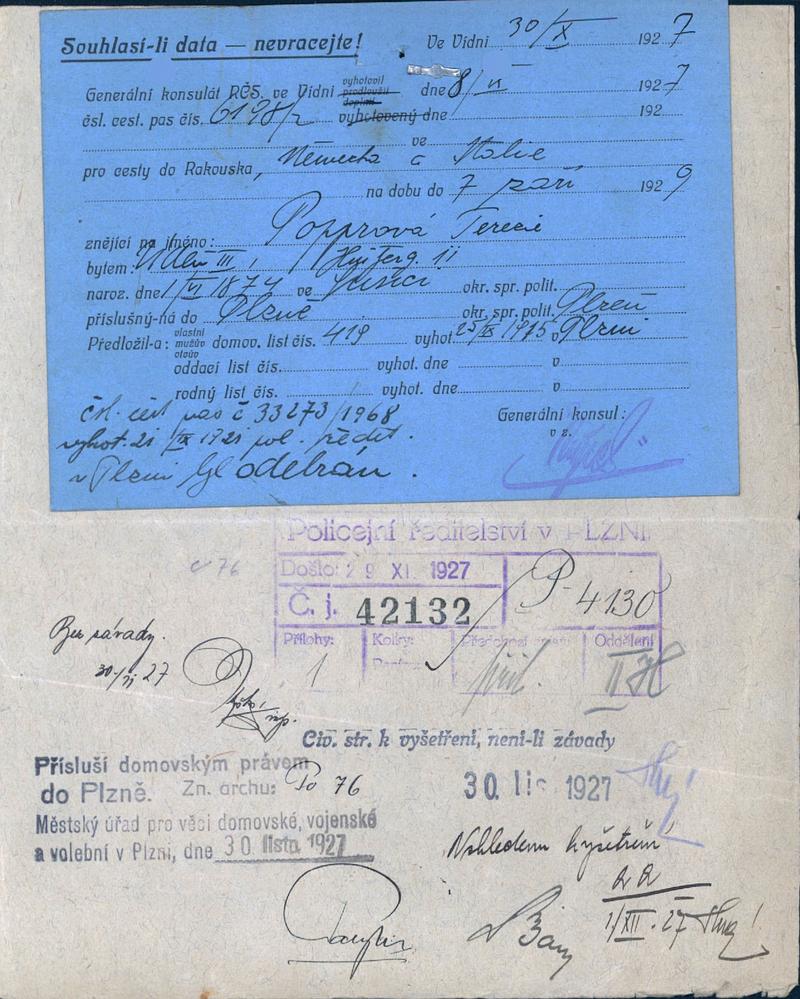 Souhlasí-li data — nevracejte!
Ve Vídni 30/X 1927
Generální konsulát RČS. ve Vídni vyhotovil prodloužil doplnil dne 8/VI 1927
čsl. cest. pas čís. 6198/2 vyhotovený dne 192
ve
pro cesty do Rakouska, Německa a Italie
na dobu do 7 září 1929
znějící na jméno: Popprová Terezie
bytem: Vídeň III,
naroz. dne 1/VI 1874 ve okr. spr. polit.
příslušný-ná do Plzně okr. spr. polit. Plzeň
Předložil-a: vlastní mužův otcův domov. list čís. 419 vyhot. 25/IX 1915 v Plzni
oddací list čís. vyhot. dne v
rodný list čís. vyhot. dne v
čsl. cest. pas č 33273/1968
vyhot. 21/IX 1921 pol. ředit.
v Plzni odebrán.
Generální konsul:
v z.
Policejní ředitelství v PLZNI
Došlo: 29 XI. 1927
Č. j. 42132 P-4130
Přílohy: Kolky: Oddělení
1 II
c 76
Bez závady.
30/XI 27
Civ. str. k vyšetření, není-li závady
Přísluší domovským právem
do Plzně. Zn. archu: Po 76
30. lis 1927
Městský úřad pro věci domovské, vojenské
a volební v Plzni, dne 30. listo. 1927
1/XII. 27